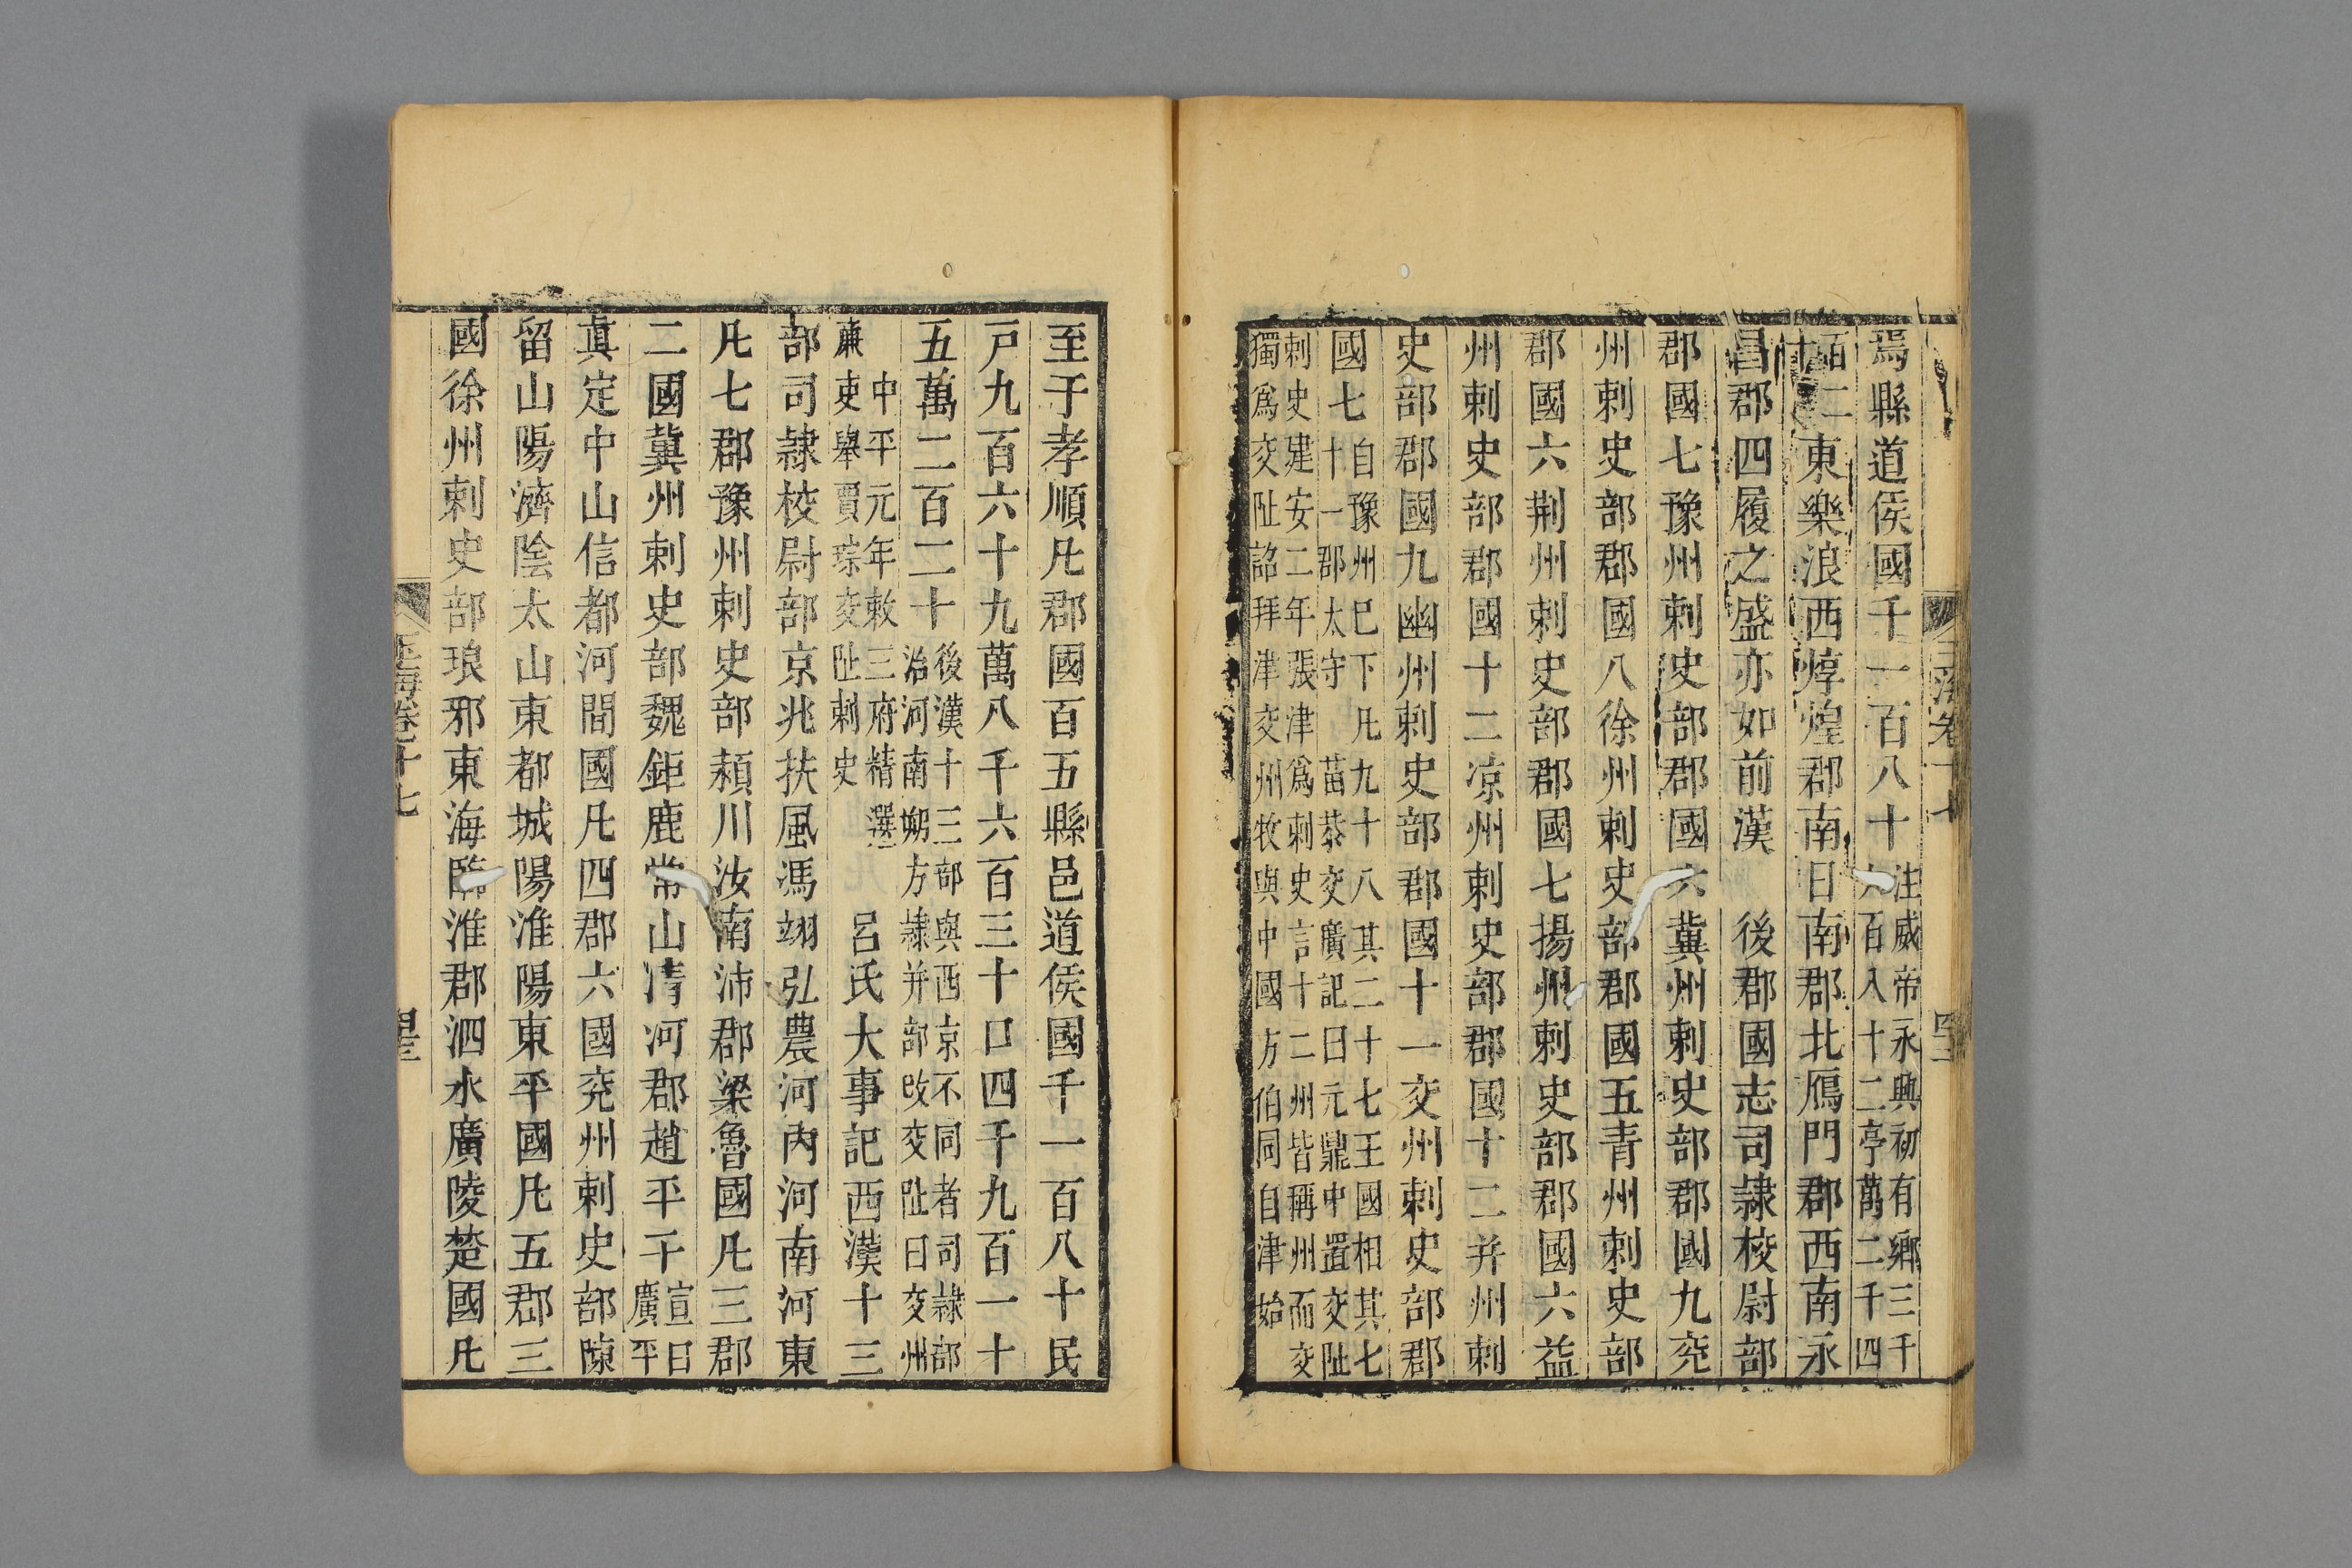 焉縣道侯國千一百八十注威帝永興初有鄉三千六百八十二亭萬二千四
百二東樂浪西焞煌郡南日南郡北鴈門郡西南永
昌郡四履之盛亦如前漢　後郡國志司隷校尉部
郡國七豫州刺史部郡國六冀州刺史部郡國九兖
州刺史部郡國八徐州刺史部郡國五青州刺史部
郡國六荆州刺史部郡國七揚州刺史部郡國六益
州刺史部郡國十二凉州刺史部郡國十二并州刺
史部郡國九幽州刺史部郡國十一交州刺史部郡
國七自豫州已下凡九十八其二十七王國相其七十一郡太守　苗恭交廣記曰元鼎中置交阯
刺史建安二年張津爲刺史言十二州皆稱州而交
獨爲交阯詔拜津交州牧與中國方伯同自津始
至于孝順凡郡國百五縣邑道侯國千一百八十民
戸九百六十九萬八千六百三十口四千九百一十
五萬二百二十後漢十三部與西京不同者司隷部治河南朔方隷并部改交阯曰交州
中平元年敕三府精選廉吏舉賈琮交阯刺史　呂氏大事記西漢十三
部司隷校尉部京兆扶風馮翊弘農河内河南河東
凡七郡豫州刺史部潁川汝南沛郡梁魯國凡三郡
二國冀州刺史部魏鉅鹿常山清河郡趙平干宣曰廣平
真定中山信都河間國凡四郡六國兖州刺史部陳
留山陽濟陰太山東都城陽淮陽東平國凡五郡三
國徐州刺史部琅邪東海臨淮郡泗水廣陵楚國凡
玉海卷十七